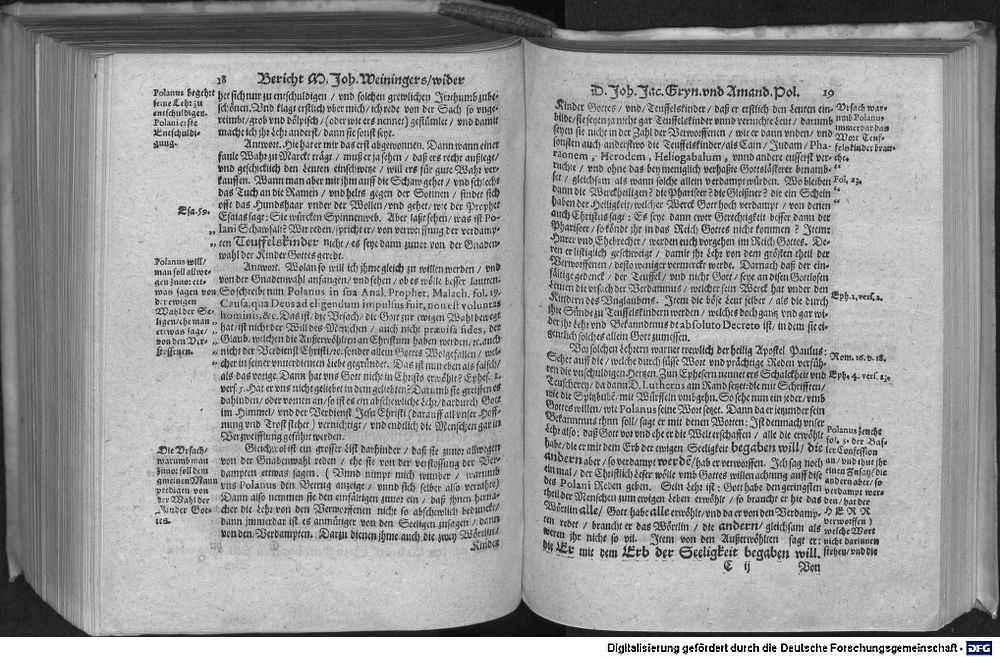 18 Bericht M. Joh. Weiningers/wider
Polanus begehrt
seine Lehr zu
entschuldigen.
Polani erste
Entschuldi-
gung.
het sich nur zu entschuldigen / vnd solchen grewlichen Jrrthumb zube-
schönen. Vnd klagt erstlich vber mich / ich rede von der Sach so vnge-
reimbt/grob vnd dölpisch/(oder wie ers nennet) gestümlet / vnd damit
mache ich jhr Lehr anderst/ dann sie sonst seye.
Antwort. Hie hat er mir das erst abgewonnen. Dann wann einer
faule Wahr zu Marckt trägt / muß er ja sehen / daß ers recht außlegt/
vnd geschicklich den Leuten einschwetze / will ers für gute Wahr ver-
kauffen. Wann man aber mit jhm auff die Schaw gehet / vnd schlecht
das Tuch an die Ramen / vnd helts gegen der Sonnen / findet sich
offt das Hundshaar vnder der Wollen / vnd gehet / wie der Prophet
Esa. 59.
Esaias sagt: Sie würcken Spinnenweb. Aber laßt sehen / was ist Po-
lani Schawfalt? Wir reden/spricht er/ von verwerffung der verdamp-
ten Teuffelskinder nicht / es seye dann zuvor von der Gnaden-
wahl der Kinder Gottes geredt.
Polanus will/
man soll allwe-
gen zuvor et-
was sagen von
der ewigen
Wahl der Se-
ligen/ehe man
etwas sage/
von den Ver-
stossenen.
Antwort. Wolan so will ich jhme gleich zu willen werden / vnd
von der Gnadenwahl anfangen / vnd sehen / ob es wölle besser lauten.
So schreibt nun Polanus in sua Anal. Prophet. Malach. fol. 19.
Causa, qua Deus ad eligendum impulsus fuit, non est voluntas
hominis. &c. Das ist / die Vrsach / die Gott zur ewigen Wahl bewegt
hat / ist nicht der Will des Menschen / auch nicht prævisa fides, der
Glaub / welchen die Außerwöhlten an Christum haben werden / ec. auch
nicht der Verdienst Christi / ec. sonder allein Gottes Wolgefallen / wel-
cher in seiner vnverdienten Liebe gegründet. Das ist nun eben als falsch /
als das vorige. Dann hat vns Gott nicht in Christo erwöhlt? Ephes. 1.
vers. 5. Hat er vns nicht geliebet in dem geliebten? Darumb sie greiffen es
dahinden / oder vornen an / so ist es ein abschewliche Lehr / dardurch Gott
im Himmel / vnd der Verdienst Jesu Christi (darauff all vnser Hoff-
nung vnd Trost stehet) vernichtiget / vnd endtlich die Menschen gar in
Verzweifflung geführt werden.
Die Vrsach/
warumb man
zuvor soll dem
gemeinen Mann
predigen von
der Wahl der
Kinder Got-
tes.
Gleichwol ist ein grosser List darhinder / daß sie zuvor allwegen
von der Gnadenwahl reden / ehe sie von der verstossung der Ver-
dampten etwas sagen. (Vnnd nimpt mich wunder / warumb
vns Polanus den Betrug anzeige / vnnd sich selber also verrahte)
Dann also nemmen sie den einfältigen zuvor ein / daß jhnen herna-
cher die Lehr von den Verworffenen nicht so abschewlich beduncke/
dann jmmerdar ist es anmütiger von den Seeligen zusagen / dann
von den Verdampten. Darzu dienen jhme auch die zwey Wörtlin/
Kinder
D. Joh. Jac. Gryn. vnd Amand. Pol. 19
Kinder Gottes / vnd / Teuffelskinder / daß er erstlich den Leuten ein-
bilde / sie seyen ja nicht gar Teuffelskinder vnnd vernichte Leut / darumb
seyen sie nicht in der Zahl der Verworffenen / wie er dann vnden / vnd
sonsten auch anderstwo die Teuffelskinder/als Cain / Judam / Pha-
raonem, Herodem, Heliogabalum, vnnd andere eusserst ver-
ruchte / vnd ohne das beymeniglich verhaßte Gottslästerer benamb-
set / gleichsam als wann solche allein verdampt würden. Wo bleiben
dann die Werckheiligen? die Phariseer? die Gleißner? die ein Schein
haben der Heiligkeit/ welcher Werck Gott hoch verdampt / von denen
auch Christus sagt: Es seye dann ewer Gerechtigkeit besser dann der
Phariseer / so köndt jhr in das Reich Gottes nicht kommen? Jtem:
Hurer vnd Ehebrecher / werden euch vorgehen im Reich Gottes. De-
ren er listiglich geschweigt / damit jhr Lehr von dem grösten theil der
Verworffenen / desto weniger vermerckt werde. Darnach daß der ein-
fältige gedenck / der Teuffel / vnd nicht Gott / seye an disen Gottlosen
Leuten die vrsach der Verdamnus / welcher sein Werck hat vnder den
Kindern des Vnglaubens. Jtem die böse Leut selber / als die durch
jhre Sünde zu Teuffelskindern werden / welches doch gantz vnd gar wi-
der jhr Lehr vnd Bekanndtnus de absoluto Decreto ist, in dem sie ei-
gentlich solches allein Gott zumessen.
Vrsach war-
umb Polanus
jmmerdar das
Wort Teuf-
felskinder brau-
che.
Fol. 23.
Eph. 2. vers. 2.
Vor solchen Lehrern warnet trewlich der heilig Apostel Paulus:
Sehet auff die / welche durch süsse Wort vnd prächtige Reden verfüh-
ren die vnschuldigen Hertzen. Zun Ephesern nennet ers Schalckheit vnd
Teuscherey / da dann D. Lutherus am Rand setzet: die mit Schriften /
wie die Spitzbube, mit Würffeln vmbgehn. So sehe nun ein jeder / vmb
Gottes willen / wie Polanus seine Wort setzet. Dann da er jetzunder sein
Bekanntnus thun soll / sagt er mit denen Worten: Jst demnach vnser
Lehr also: daß Gott vor vnd ehe er die Welt erschaffen / alle die erwöhlt
habe/die er mit dem Erb der ewigen Seeligkeit begaben will / die
andern aber / so verdampt werdē / hab er verworffen. Jch sag noch
ein mal / der Christlich Leser wölle vmb Gottes willen achtung auff dise
des Polani Reden geben. Sein Lehr ist: Gott habe den geringsten
theil der Menschen zum ewigen Leben erwöhlt / so braucht er hie das
Wörtlin alle / Gott habe alle erwöhlt / vnd da er von den Verdamp-
ten redet / braucht er das Wörtlin / die andern / gleichsam als
weren jhr nicht so vil. Jtem von den Außerwöhlten sagt er:
die Er mit dem Erb der Seeligkeit begaben will.
Rom. 16. v. 18.
Eph. 4. vers. 14.
Polanus zeucht
fol. 3. der Bas-
ler Confession
an / vnd thut jhr
einen Zusatz (die
andern aber/ so
verdampt wer-
den / hat der
HERR
verworffen)
welche Wort
nicht darinnen
stehen / vnd die
C ij Von
Digitalisierung gefördert durch die Deutsche Forschungsgemeinschaft - DFG